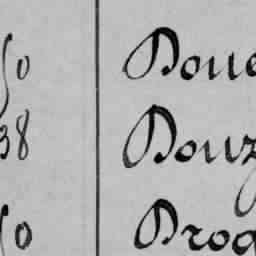 50 Doue
38 Douz
50 Drog